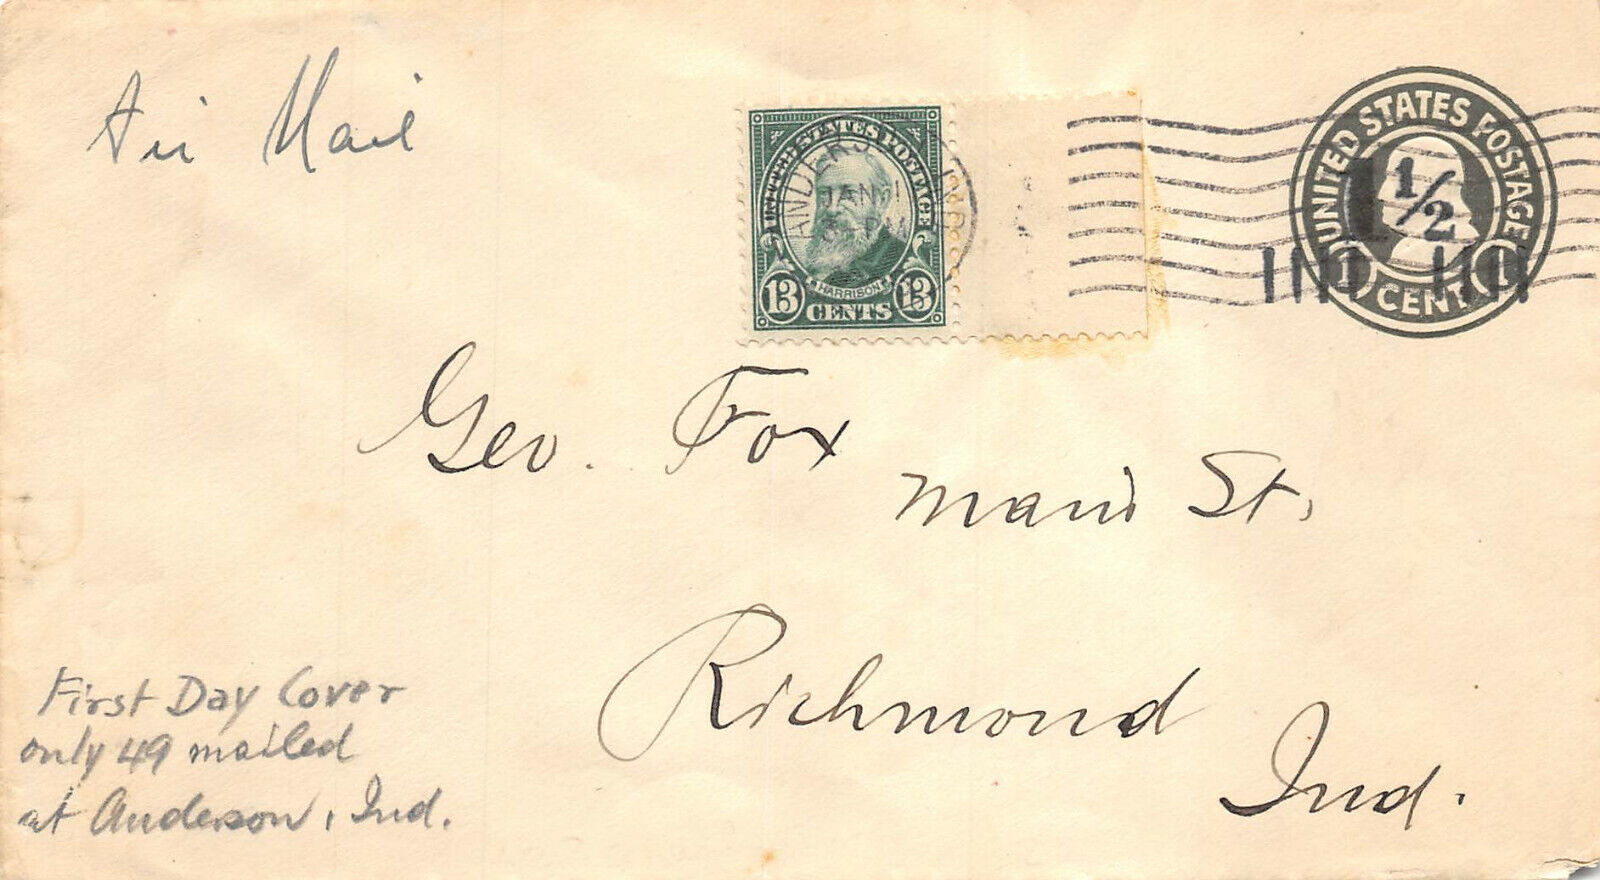 Air Mail
UNITED STATES POSTAGE
HARRISON
13 13
CENTS
JAN 11
UNITED STATES POSTAGE
1 1/2
1 CENT 1
Geo. Fox
Main St.
Richmond
Ind.
First Day Cover
only 49 mailed
at Anderson, Ind.